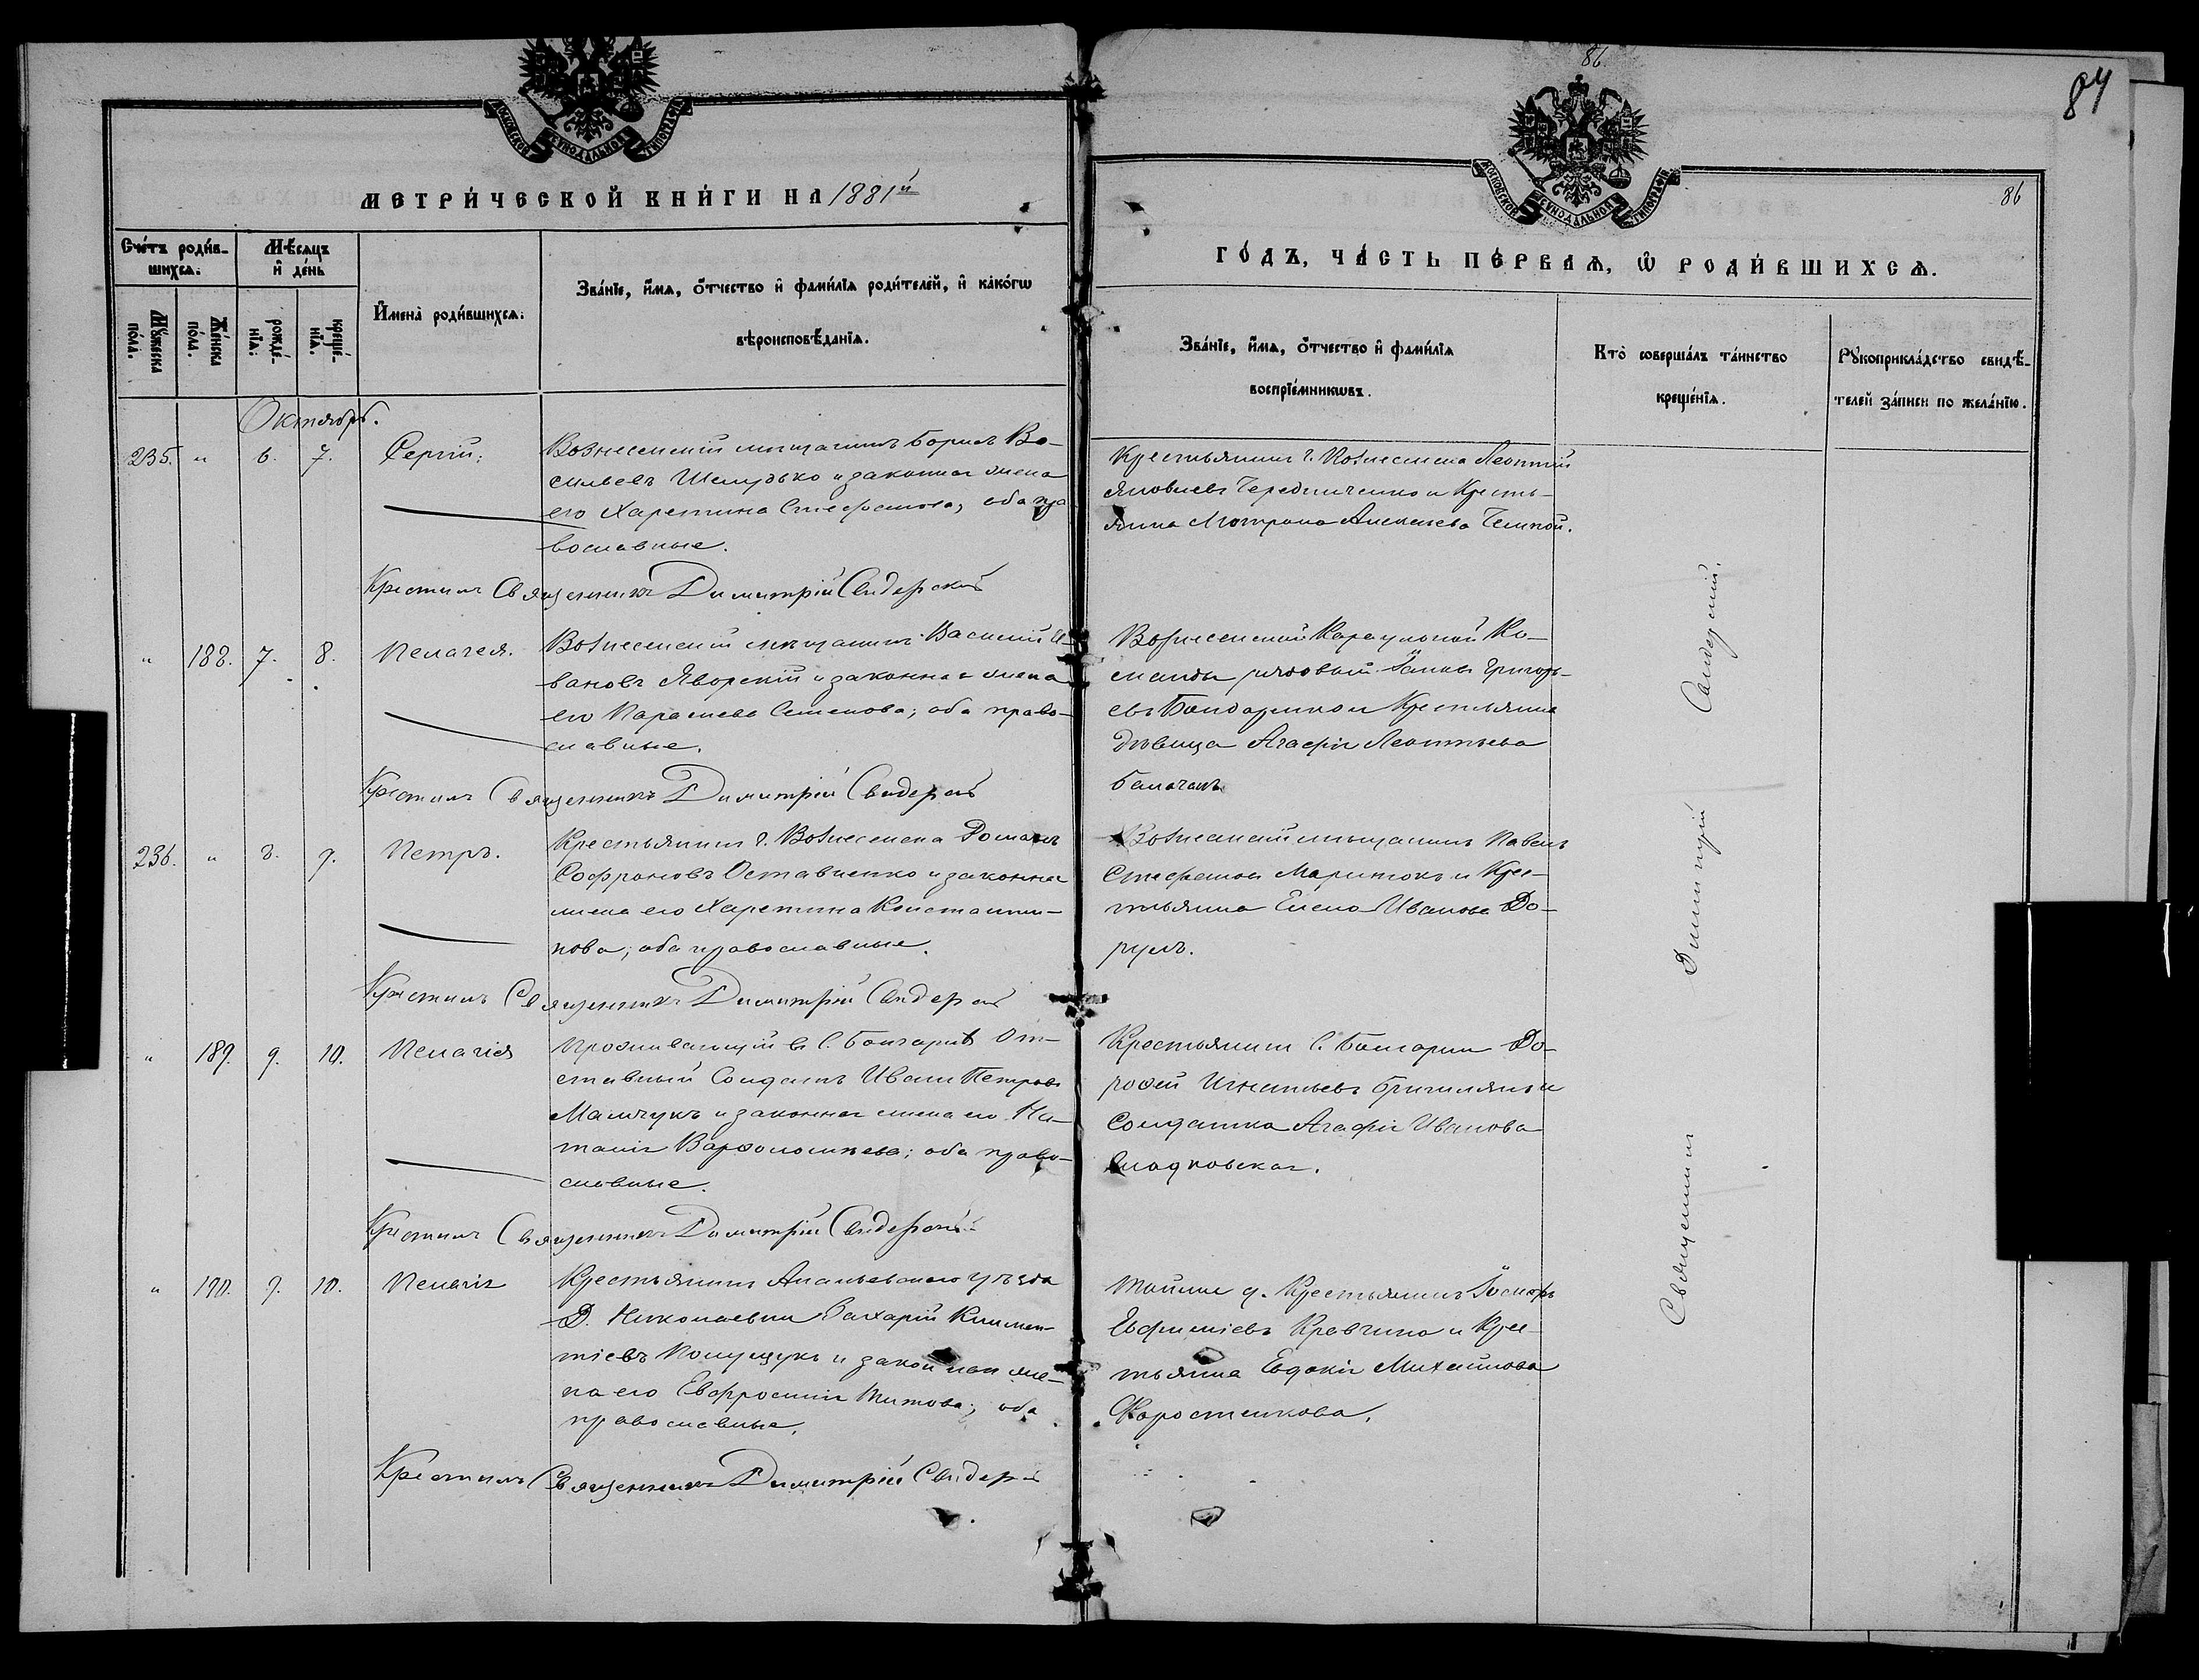 86.
84
86
МОСКОВСКОЙ СѴНОДАЛЬНОЙ ТИПОГРАФІИ
МЕТРИ́ЧЕСКОЙ КНИ́ГИ НА 1881й
МОСКОВСКОЙ СѴНОДАЛЬНОЙ ТИПОГРАФІИ
ГО́ДЪ, ЧА́СТЬ ПЕ́РВАѦ, Ѡ РОДИ́ВШИХСѦ.
Сче́тъ роди́в-
шихсѧ.
Мѣ́сѧцъ
и҆ де́нь
Мꙋ́жеска
по́ла.
Же́нска
по́ла.
рожде́-
нїѧ:
креще́-
нїѧ.
И҆мена̀ роди́вшихсѧ.
Зва́нїе, и҆́мѧ, ѻ҆́тчество и҆ фами́лїѧ роди́телей, и҆ како́гѡ
вѣроисповѣ́данїѧ.
Зва́нїе, и҆́мѧ, ѻ҆́тчество и҆ фами́лїѧ
воспрїе́мникѡвъ.
Кто̀ соверша́лъ та́инство
креще́нїѧ.
Рꙋкоприкла́дство свидѣ́-
телей за́писи по жела́нїю.
Октябрь.
235. „ 6. 7. Сергій.
Вознесенскій мѣщанинъ Борисъ Ва-
сильевъ Шелудько и законная жена
его Харитина Стефанова, оба пра
вославные.
Крестьянинъ г. Вознесенска Леонтій
Яковлевъ Чередниченко и Кресть-
янка Мотрона Алексѣева
Крестилъ Священникъ Димитрій Свидерскій
„ 188. 7. 8. Пелагея.
Вознесенскій мѣщанинъ Василій И-
вановъ Яворскій и законная жена
его Параскева Семенова; оба право-
славные.
Вознесенской Караульной Ко-
манды рядовый Іаковъ Григорь-
евъ и Крестьянка
дѣвица Агафія Леонтьева
Крестилъ Священникъ Димитрій Свидерскій
236. „ 8. 9. Петръ.
Крестьянинъ г. Вознесенска Романъ
Софроновъ Оставненко и законная
жена его Харитина Константи-
нова; оба православные.
Вознесенскій мѣщанинъ Павелъ
Стефановъ и Крес-
тьянка Елена Иванова До-
руль.
Крестилъ Священникъ Димитрій Свидерскій
„ 189. 9. 10. Пелагія
Проживающій въ С. Болгаркѣ От-
ставный Солдатъ Иванъ Петровъ
Мальчукъ и законная жена его На-
талія Варѳоломѣева; оба право-
славные.
Крестьянинъ С. Болгарки До-
роѳей Игнатьевъ и
Солдатка Агафія Иванова
Крестилъ Священникъ Димитрій Свидерскій
„ 190. 9. 10. Пелагія
Крестьянинъ Ананьевскаго уѣзда
Д. Николаевки Захарій Климен-
тіевъ Полищукъ и законная же-
на его Евфросинія Титова; оба
православные.
Той же д. Крестьянинъ Іосифъ
Евфиміевъ Кравченко и Крес-
тьянка Евдокія Михайлова
Форостенкова.
Крестилъ Священникъ Димитрій Свидерскій
Священникъ Димитрій Свидерскій.